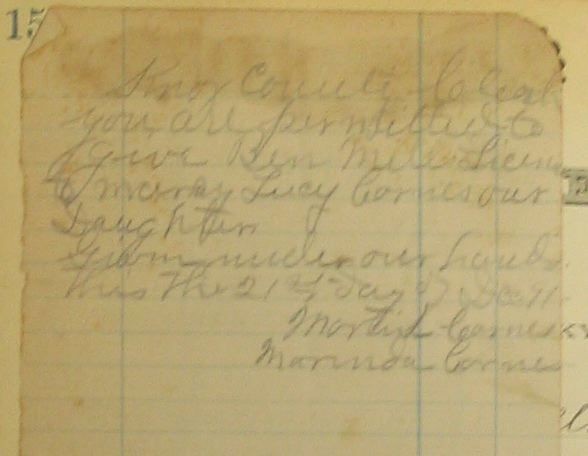 15
Knox County Clerk
you are permitted to
give Ben Mills Licens
to marray Lucy Carnes our
Daughter
Givin under our hands
this the 21st day of Dec
Martish Carnes
Marinda Carnes